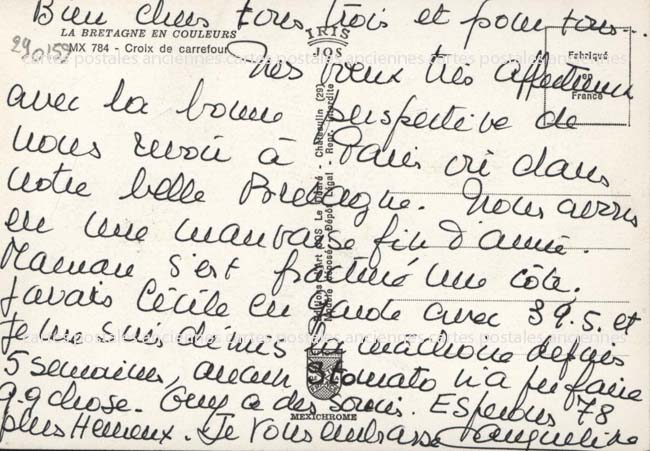 Bien chers tous trois et pour tous...
LA BRETAGNE EN COULEURS
MX 784 - Croix de carrefour
IRIS
JOS
Fabriqué
en
France
29
cartes postales anciennes cartes postales anciennes cartes postales anciennes
Mes voeux très affectueux
avec la bonne perspective de
nous revoir à Paris où dans
notre belle Bretagne. Nous avons
eu une mauvaise fin d'année.
Maman s'est fracturé une côte.
J'avais Cécile en garde avec 39.5. et
je me suis démis la machoire depuis
5 semaines, aucun Stomato n'a pu faire
q.q chose. Guy a des soucis. Espérons 78
plus Heureux. Je vous embrasse Jacqueline
Editions d'Art JOS Le Doaré - Chateaulin (29)
Modèle déposé - Dépôt Légal - Repr. Interdite
cartes postales anciennes cartes postales anciennes cartes postales anciennes
MEXICHROME